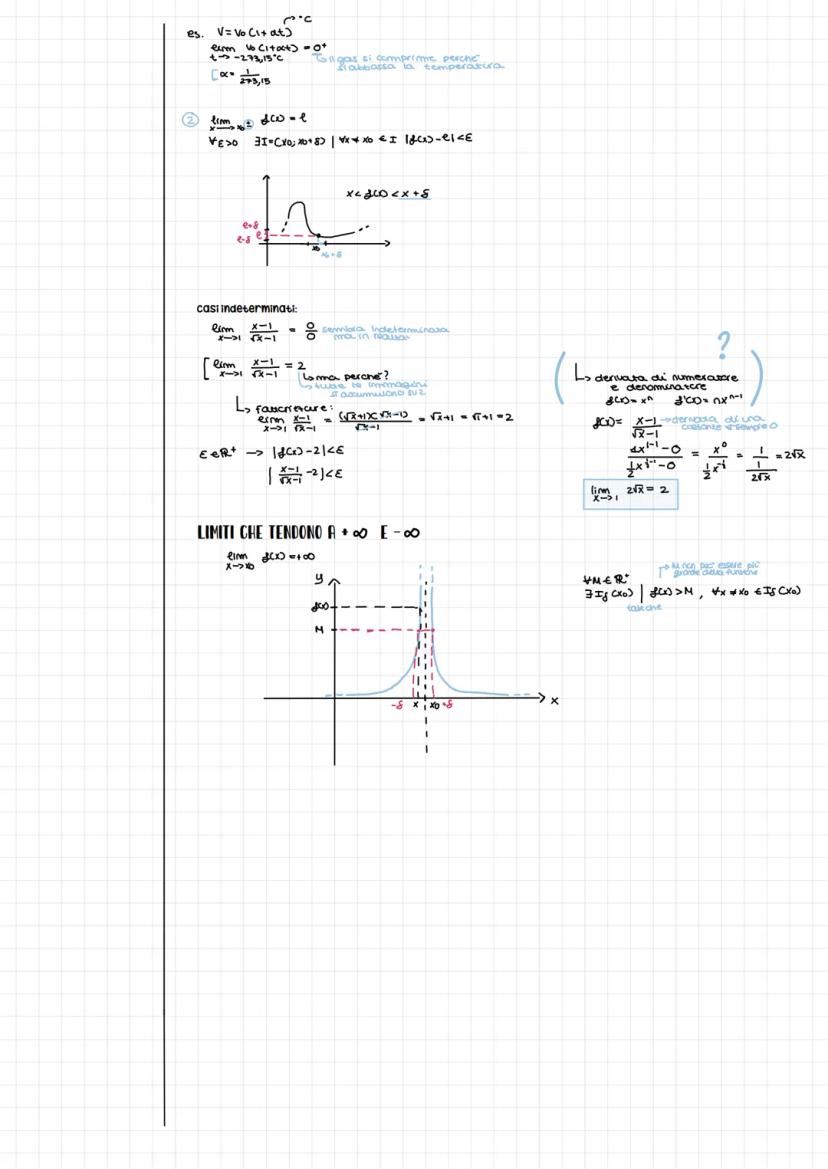 °C
es. V = V₀ (1 + αt)
lim V₀ (1+αt) = 0⁺
t → -273,15°C
↳ il gas si comprime perché
si abbassa la temperatura
[α = 1/273,15
② lim f(x) = l
x → x₀±
∀ε>0 ∃I=(x₀; x₀+δ) | ∀x≠x₀ ∈ I |f(x)-l|<ε
x < f(x) < x + δ
l+δ
l
l-δ
x₀
x₀+δ
casi indeterminati:
lim x→1 (x-1)/(√x-1) = 0/0 sembra indeterminata
ma in realtà
[lim x→1 (x-1)/(√x-1) = 2
↳ ma perché?
↳ tutte le immagini
si accumulano su 2
↳ fattorizzare:
lim x→1 (x-1)/(√x-1) = (√x+1)(√x-1)/(√x-1) = √x+1 = √1+1 = 2
ε ∈ ℝ⁺ → |f(x)-2|<ε
|(x-1)/(√x-1) -2|<ε
?
↳ derivata di numeratore
e denominatore
f(x) = xⁿ f'(x) = nxⁿ⁻¹
f(x) = (x-1)/(√x-1) → derivata di una
costante è sempre 0
(1x¹⁻¹-0)/(½x^(½-1)-0) = x⁰/(½x^(-½)) = 1/(1/(2√x)) = 2√x
lim x→1 2√x = 2
LIMITI CHE TENDONO A +∞ E -∞
lim f(x) = +∞
x→x₀
y
f(x)
M
-δ x x₀ +δ
x
↱ M non può essere più
grande della funzione
∀M ∈ ℝ⁺
∃ Iδ (x₀) | f(x) > M, ∀x ≠ x₀ ∈ Iδ (x₀)
tale che